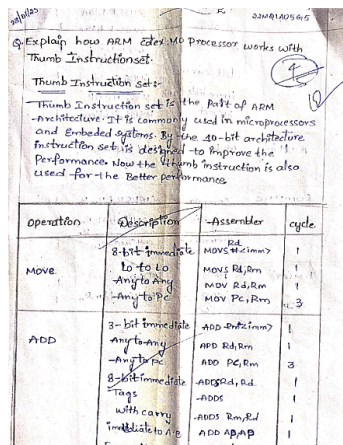 28/01/25
22JMQ1A05G5
Q. Explain how ARM Cotex.M0 Processor works with
Thumb Instructionset.
4
Thumb Instruction set:-
Thumb Instruction set is the Part of ARM
-Architecture. It is commonly used in microprocessors
and Embeded systems. By the 10-bit architecture
instruction set is designed to improve the
Performance. Now the thumb instruction is also
used for the Better performance
Operation Description -Assembler cycle
MOVE 8-bit immediate MOVS Rd #<imm> 1
Lo to Lo MOVS Rd,Rm 1
-Any to Any MOV Rd,Rm 1
-Any to PC MOV PC,Rm 3
ADD 3-bit immediate ADD <imm> 1
Any to-Any ADD Rd,Rm 1
-Any to PC ADD PC,Rm 3
8-bit immediate ADDS Rd, Rd 1
Tags -ADDS 1
with carry -ADDS Rm,Rd 1
immediate to ADD 1